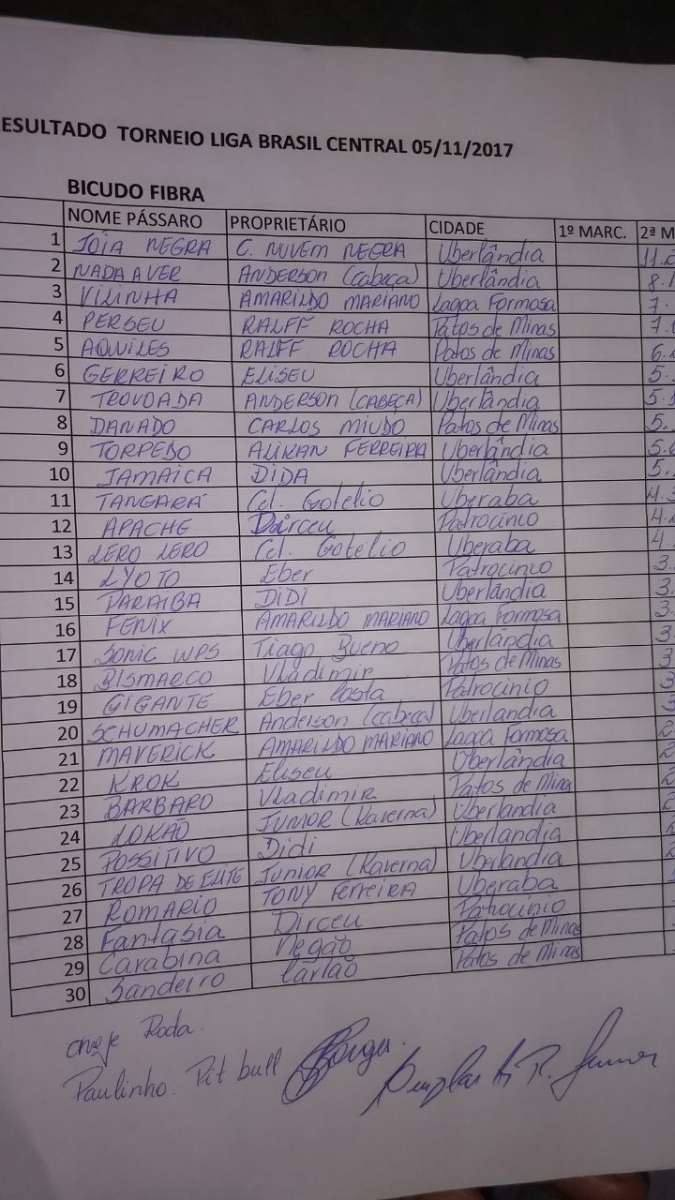 ESULTADO TORNEIO LIGA BRASIL CENTRAL 05/11/2017
BICUDO FIBRA
NOME PÁSSARO PROPRIETÁRIO CIDADE 1º MARC. 2ª M
1 JOIA NEGRA C. NUVEM NEGRA Uberlândia 11.
2 NADA A VER ANDERSON (Cabeça) Uberlândia 8.1
3 VILINHA AMARILDO MARIANO Lagoa Formosa 7.
4 PERSEU RALFF ROCHA Patos de Minas 7.
5 AQUILES RALFF ROCHA Patos de Minas 6.
6 GERREIRO ELISEU Uberlândia 5.
7 TROVOADA ANDERSON (CABEÇA) Uberlândia 5.
8 DANADO CARLOS MIUDO Patos de Minas 5.
9 TORPEDO ALIKAN FERREIRA Uberlândia 5.
10 JAMAICA DIDA Uberlândia 5.
11 TANGARÁ Cel. Gotelio Uberaba 4.
12 APACHE Dirceu Patrocinio 4.
13 LERO LERO Cel. Gotelio Uberaba 4.
14 LYOTO Eber Patrocinio 3.
15 PARAIBA DIDI Uberlândia 3.
16 FENIX AMARILDO MARIANO Lagoa Formosa 3.
17 SONIC WPS Tiago Bueno Uberlândia 3
18 BISMARCO Vladimir Patos de Minas 3
19 GIGANTE Eber Costa Patrocinio 3
20 SCHUMACHER Anderson (cabeça) Uberlandia 3
21 MAVERICK AMARILDO MARIANO Lagoa Formosa 2
22 KROK Eliseu Uberlândia 2
23 BARBARO Vladimir Patos de Minas 2
24 LOKÃO JUNIOR (Raverna) Uberlandia 2
25 POSSITIVO Didi Uberlandia 2
26 TROPA DE ELITE Junior (Raverna) Uberlandia 2
27 ROMARIO TONY Ferreira Uberaba
28 Fantasia Dirceu Patrocinio
29 Carabina Negão Patos de Minas
30 Sandeiro Carlão Patos de Minas
Roda.
Paulinho. Pit bull